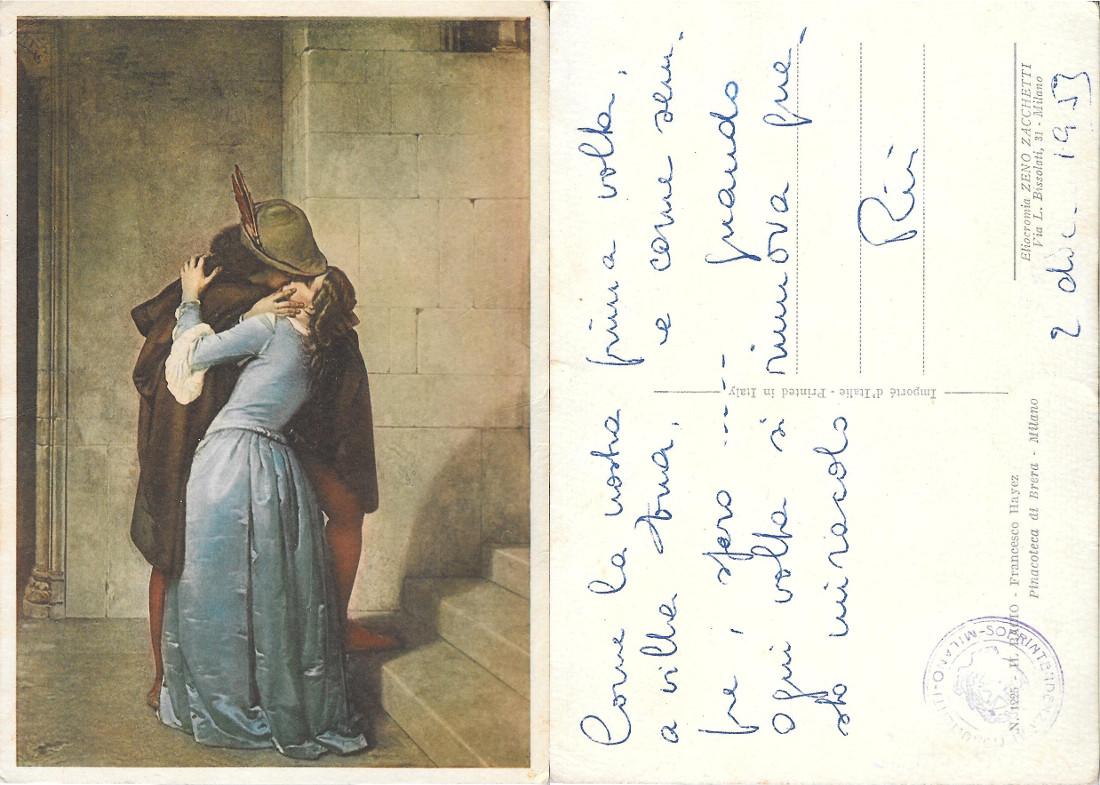 Come la nostra prima volta,
a villa e come sem-
pre, spero ..... quando
ogni volta si rinnova que-
sto miracolo
2 dic. 1953
Eliocromia ZENO ZACCHETTI
Via L. Bissolati, 31 - Milano
Importé d'Italie - Printed in Italy
IL BACIO - Francesco Hayez
Pinacoteca di Brera - Milano
MILANO - SOPRINTENDENZA